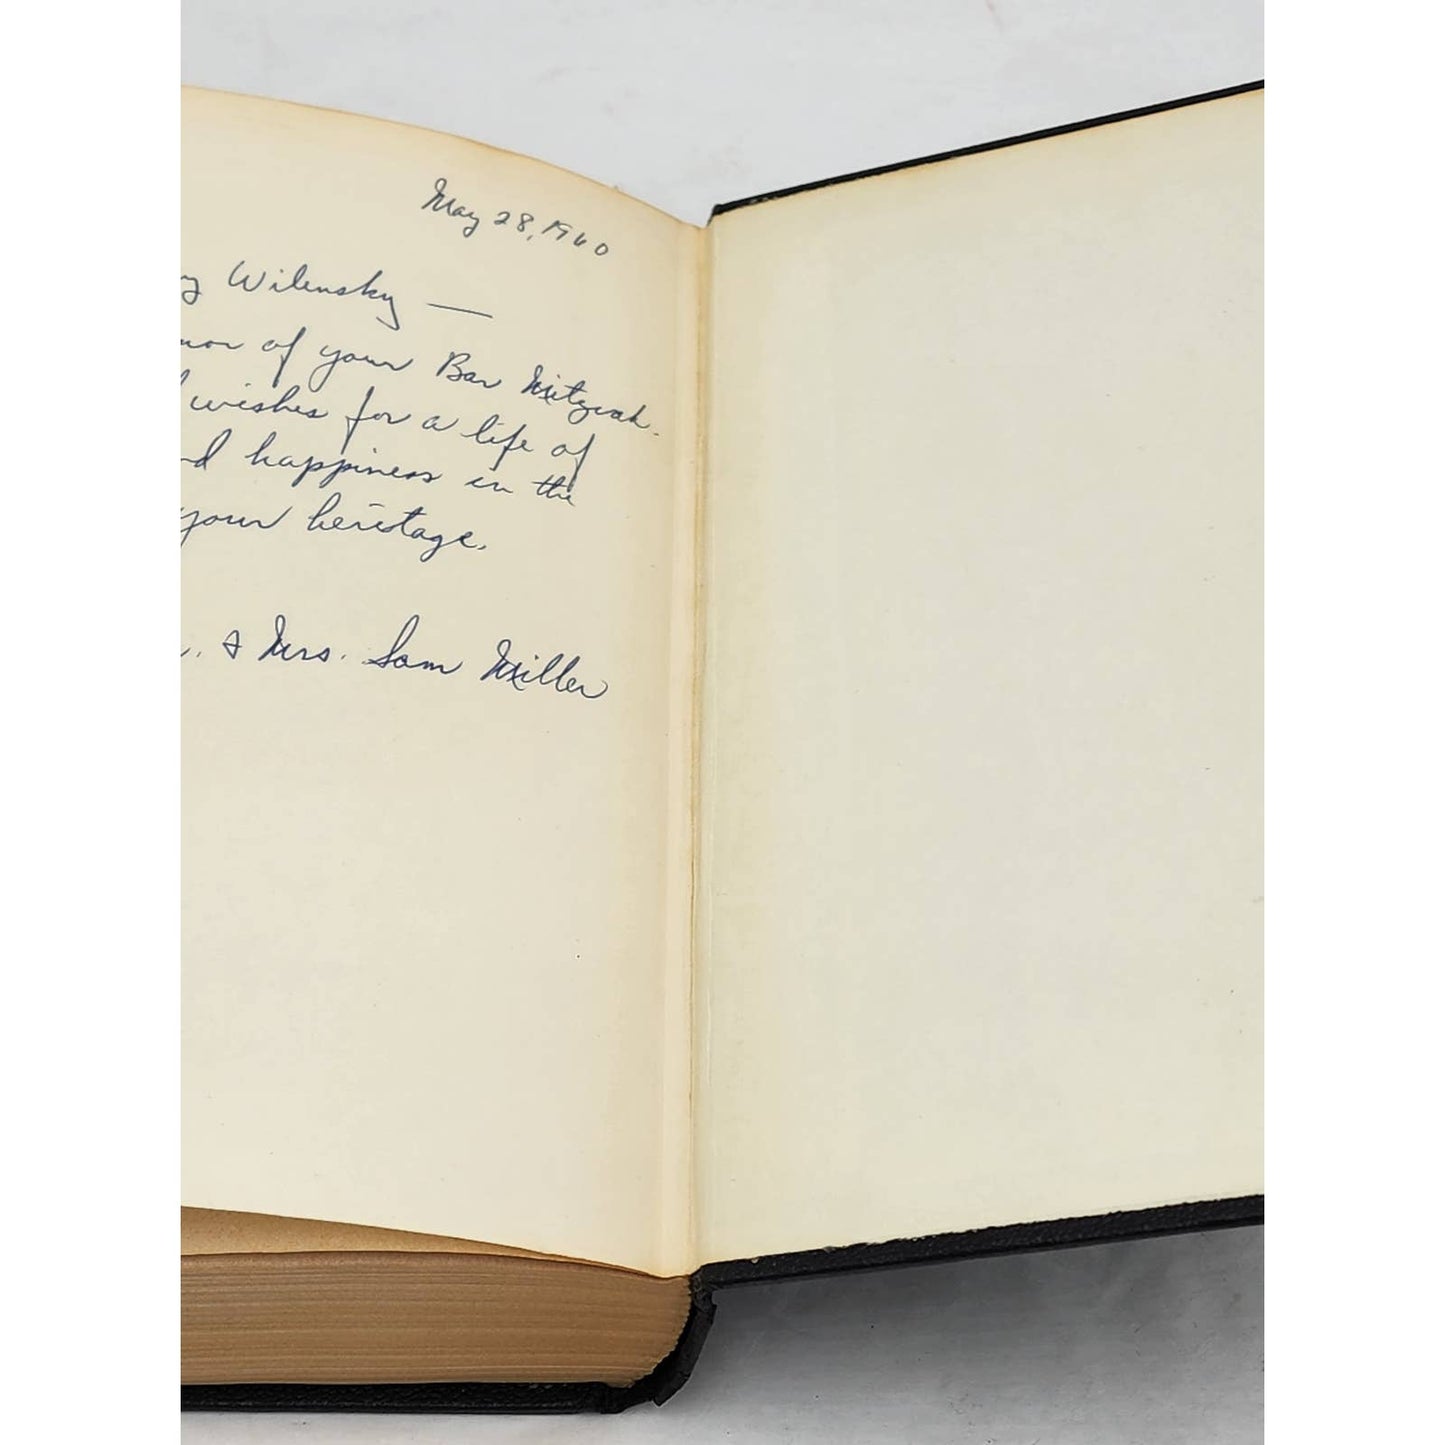 May 28, 1960
Wilensky —
of your Bar Mitzvah.
wishes for a life of
happiness in the
your heritage.
& Mrs. Sam Miller